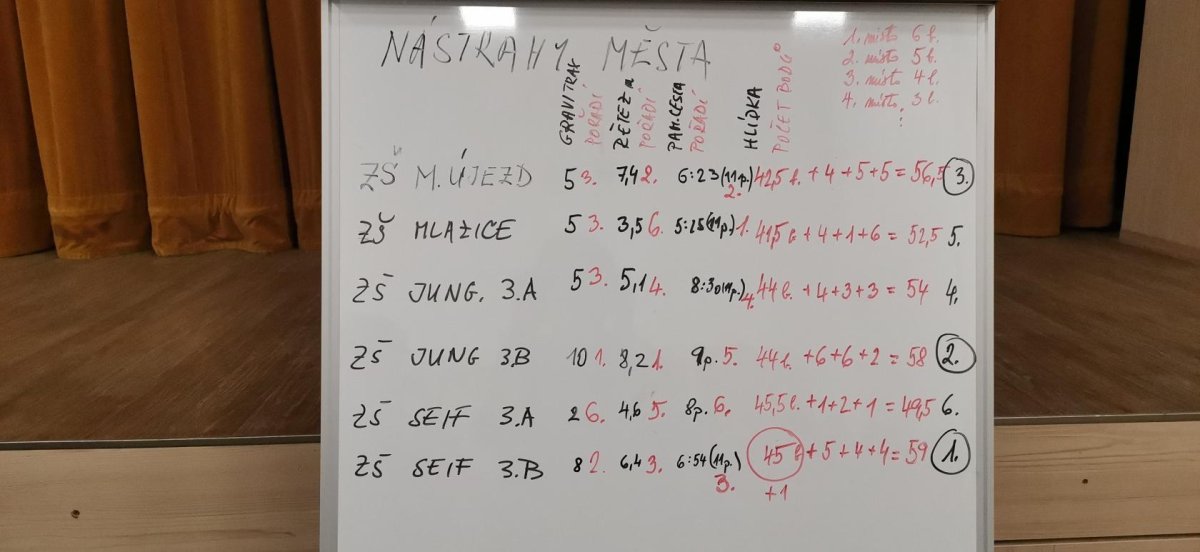 NÁSTRAHY MĚSTA
1. místo 6 b.
2. místo 5 b.
3. místo 4 b.
4. místo 3 b.
:
GRAVITRAX POŘADÍ ŘETEZ m POŘADÍ PAM. CESTA POŘADÍ HLÍDKA POČET BODŮ
ZŠ M. ÚJEZD 5 3. 7,4 2. 6:23 (11p.) 2. 42,5 b. + 4 + 5 + 5 = 56,5 3.
ZŠ MLAZICE 5 3. 3,5 6. 5:25 (11p.) 1. 41,5 b. + 4 + 1 + 6 = 52,5 5.
ZŠ JUNG. 3.A 5 3. 5,1 4. 8:30 (11p.) 4. 44 b. + 4 + 3 + 3 = 54 4.
ZŠ JUNG 3.B 10 1. 8,2 1. 9p. 5. 44 b. + 6 + 6 + 2 = 58 2.
ZŠ SEIF 3.A 2 6. 4,6 5. 8p. 6. 45,5 b. + 1 + 2 + 1 = 49,5 6.
ZŠ SEIF 3.B 8 2. 6,4 3. 6:54 (11p.) 3. 45 b + 5 + 4 + 4 = 59 1.
+1